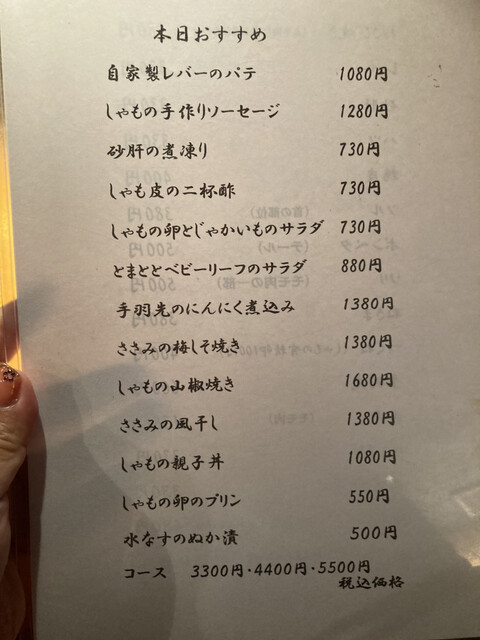 本日おすすめ
自家製レバーのパテ 1080円
しゃもの手作りソーセージ 1280円
砂肝の煮凍り 730円
しゃも皮の二杯酢 730円
しゃもの卵とじゃかいものサラダ 730円
とまととベビーリーフのサラダ 880円
手羽先のにんにく煮込み 1380円
ささみの梅しそ焼き 1380円
しゃもの山椒焼き 1680円
ささみの風干し 1380円
しゃもの親子丼 1080円
しゃもの卵のプリン 550円
水なすのぬか漬 500円
コース 3300円・4400円・5500円
税込価格